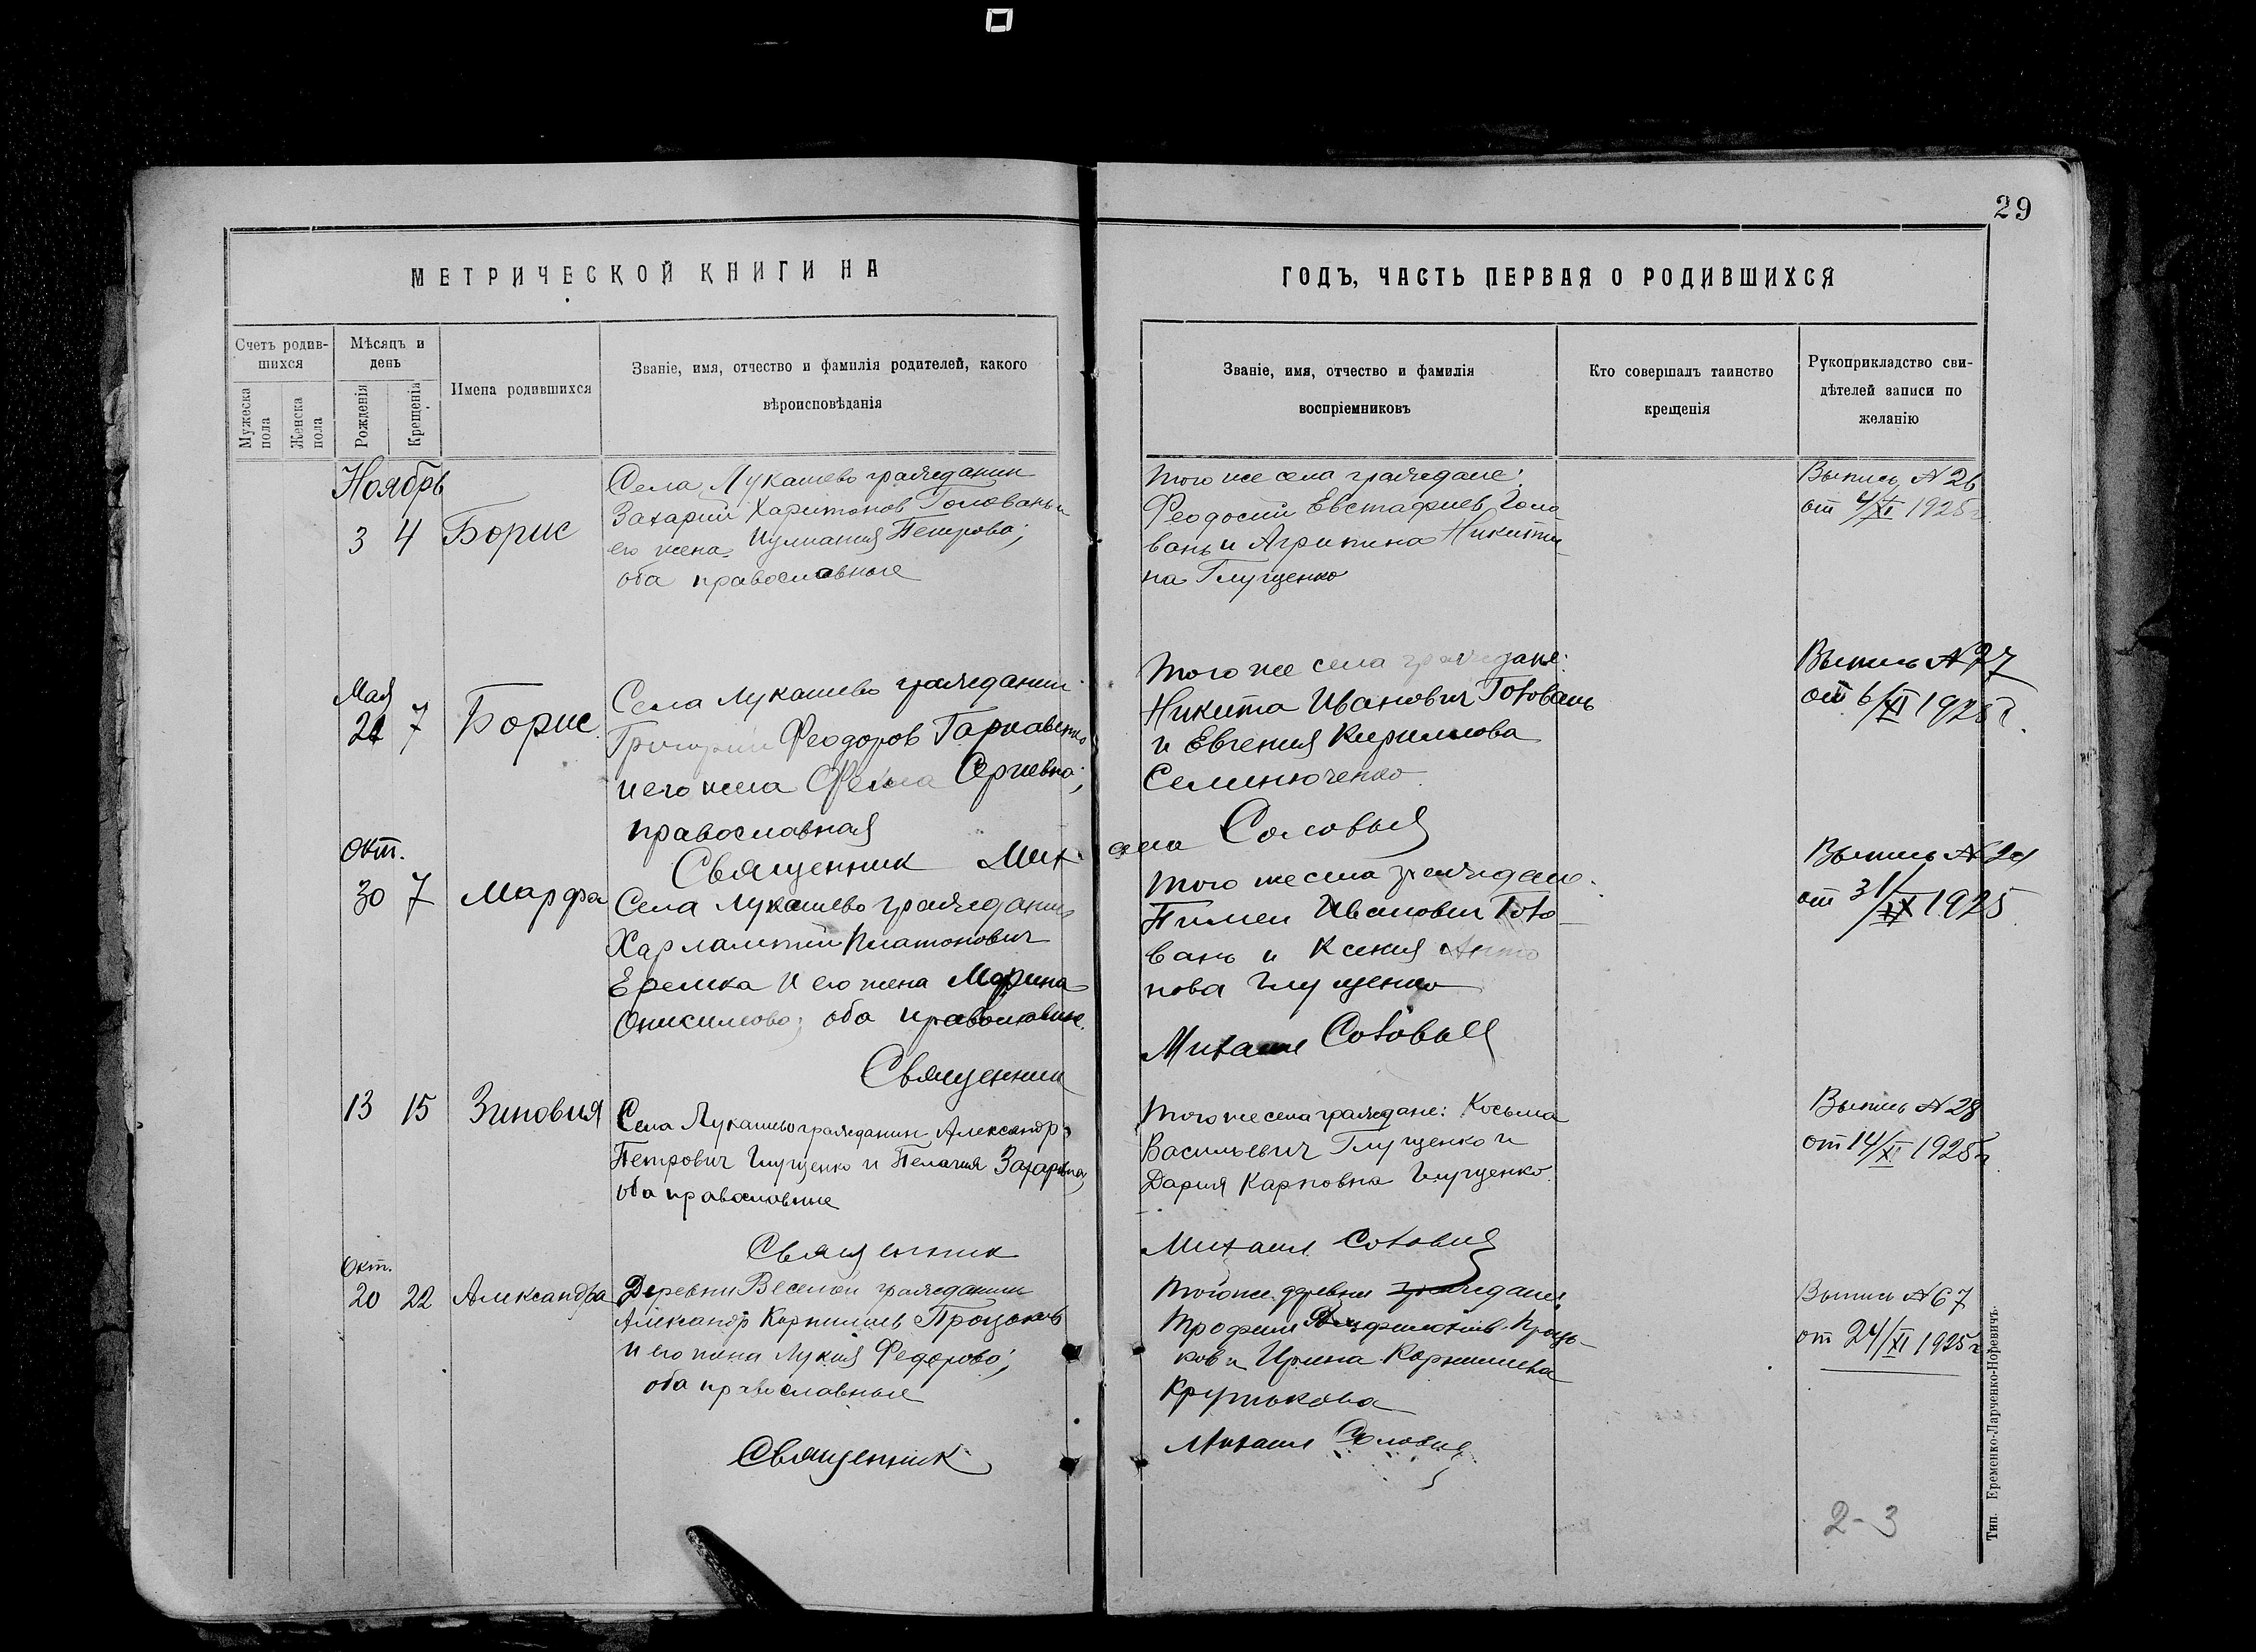 29
МЕТРИЧЕСКОЙ КНИГИ НА
ГОДЪ, ЧАСТЬ ПЕРВАЯ О РОДИВШИХСЯ
Счетъ родив-
шихся
Мужеска
пола
Женска
пола
Мѣсяцъ и
день
Рожденія
Крещенія
Имена родившихся
Званіе, имя, отчество и фамилія родителей, какого
вѣроисповѣданія
Званіе, имя, отчество и фамилія
воспріемниковъ
Кто совершалъ таинство
крещенія
Рукоприкладство сви-
дѣтелей записи по
желанію
Ноябрь
3 4 Борис
Села Лукашево гражданин
Захарий Харитонов Головань и
его жена Петрова;
оба православные
того же села граждане:
Феодосий Евстафиев Голо-
вань и Агрипина Никити-
на Глущенко
Выпись N 26
от 4/XI 1925 г
Мая
21 7 Борис
Села Лукашево гражданин
Григорий Феодоров Гаркавенко
и его жена Сргиевна;
православная
Священник Миха
того же села граждане:
Никита Иванович Головань
и Евгения Кирилова
Семенюченко
ила Соловый
Выпись N 27
от 6/XI 1925 г.
Окт.
30 7 Марфа
Села Лукашево гражданин
Харлампий Платонович
Еремка и его жена Марина
Онисимова; оба православные.
Священник
того же села граждане.
Пимен Иванович Голо-
вань и Ксения Анто
нова Глущенко
Михаил Соловый
Выпись N
от 31/IX 1925
13 15 Зиновия
Села Лукашево гражданин Александр
Петрович Глущенко и Пелагия Захаровна,
оба православные
Священник
того же села граждане: Косьма
Васильевич Глущенко и
Дария Карповна Глущенко.
Михаил Соловый
Выпись N 28
от 14/XI 1925 г.
Окт.
20 22 Александра
Деревни Веселой гражданин
Александр Корнилиев Процьков
и его жена Лукия Федорова;
оба православные
Священник
того же деревни граждане:
Трофим Проць-
ков и Ирина Корнилиева
Крутькова
Михаил Соловый
Выпись N 67
от 24/XI 1925 г
2-3
Тип. Еременко-Ларченко-Норевичъ.